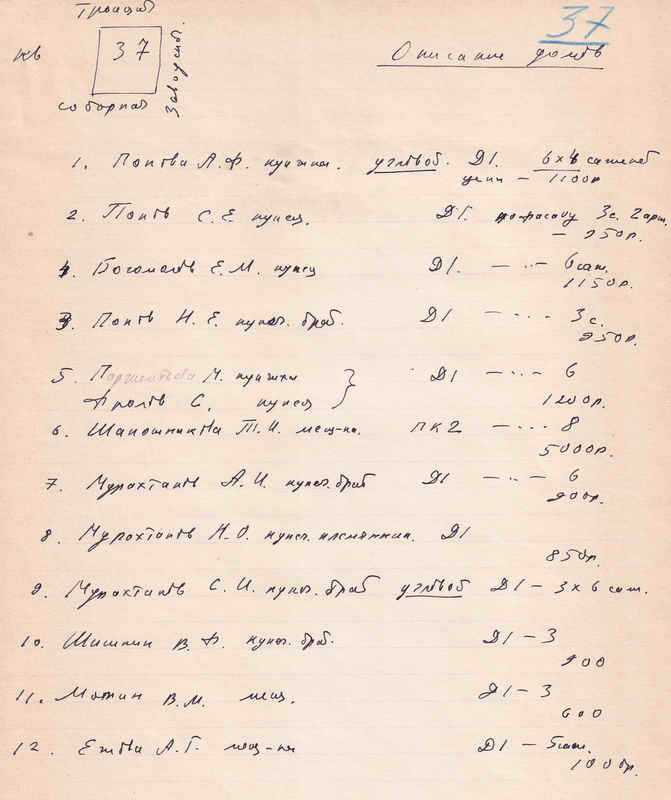 Троицк.
37
кв 37 Заводск.
Описание домов
соборная
1. Попова А.Ф. купчих. угловой. Д1. 6х4 саженей
цени – 1100р
2. Попов С.Е. купец. Д1. по фасаду 3с. 2арш.
– 950р.
4. Богомолов Е.М. купец Д1. — ·· — 6 саж.
1150р.
3. Попов Н.Е. купеч. брат. Д1 — ··· 3с.
950р.
5. Парментова М. купчиха Д1 — ·· — 6
Фролов С. купец 1200р.
6. Шапошникова Т.И. мещ-ка. ПК2 — ··· 8
5000р.
7. Мурахтанов А.И. купеч. брат Д1 — ·· — 6
900р.
8. Мурахтанов Н.О. купеч. племянник. Д1
850р.
9. Мурахтанов С.И. купеч. брат угловой Д1 – 3 х 6 саж.
10. Шишкин В.Ф. купеч. брат. Д1 – 3
900
11. Мотин В.М. мещ. Д1 – 3
600
12. Ежова А.Г. мещ-ка Д1 – 5саж.
1000р.